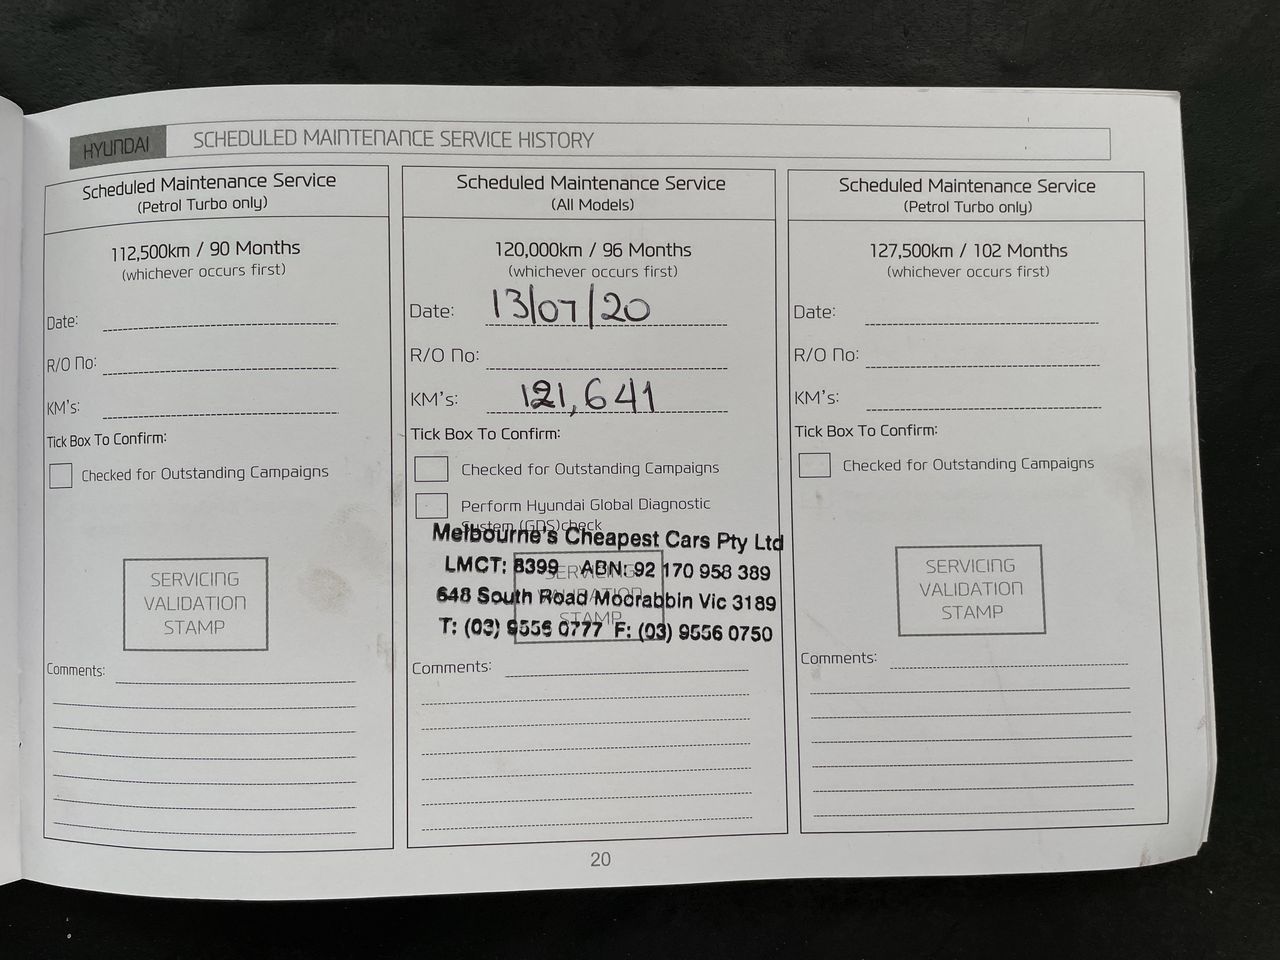 HYUNDAI SCHEDULED MAINTENANCE SERVICE HISTORY
Scheduled Maintenance Service
(Petrol Turbo only)
112,500km / 90 Months
(whichever occurs first)
Date:
R/O No:
KM's:
Tick Box To Confirm:
Checked for Outstanding Campaigns
SERVICING
VALIDATION
STAMP
Comments:
Scheduled Maintenance Service
(All Models)
120,000km / 96 Months
(whichever occurs first)
Date: 13/07/20
R/O No:
KM's: 121,641
Tick Box To Confirm:
Checked for Outstanding Campaigns
Perform Hyundai Global Diagnostic
System (GDS)check
Melbourne's Cheapest Cars Pty Ltd
LMCT: 8399 ABN: 92 170 958 389
648 South Road Moorabbin Vic 3189
T: (03) 9556 0777 F: (03) 9556 0750
SERVICING
VALIDATION
STAMP
Comments:
Scheduled Maintenance Service
(Petrol Turbo only)
127,500km / 102 Months
(whichever occurs first)
Date:
R/O No:
KM's:
Tick Box To Confirm:
Checked for Outstanding Campaigns
SERVICING
VALIDATION
STAMP
Comments:
20